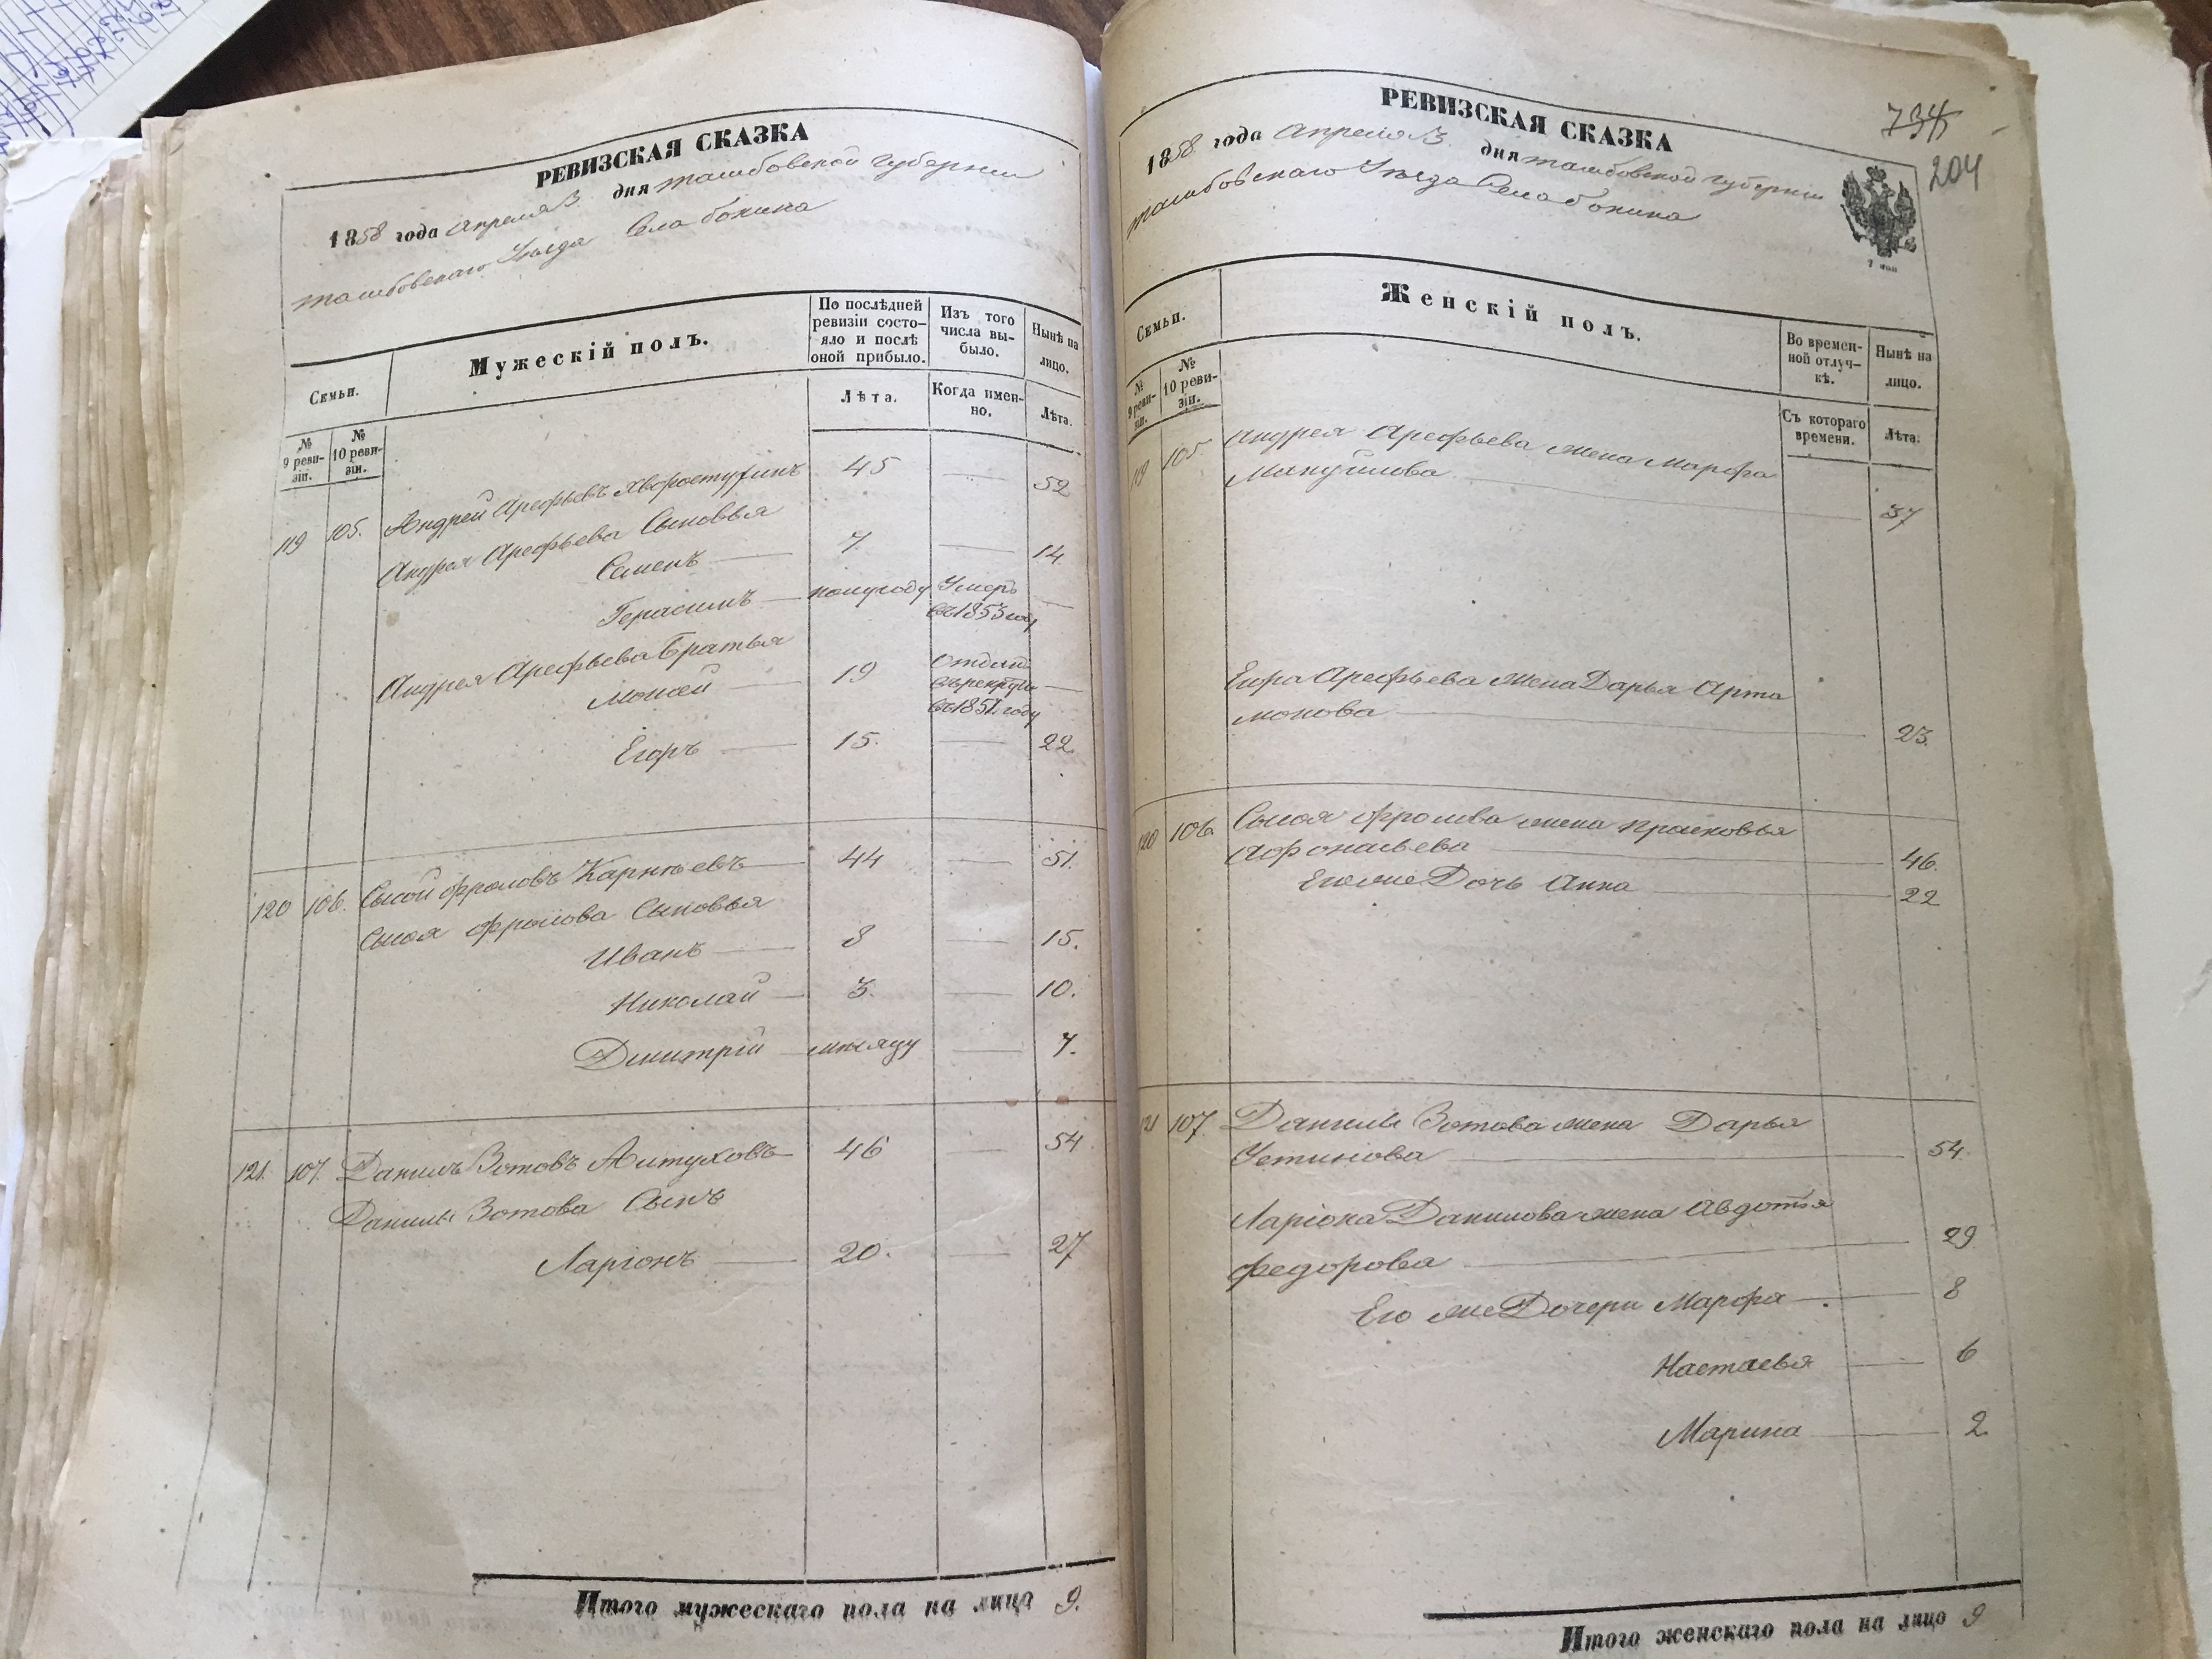 РЕВИЗСКАЯ СКАЗКА
1858 года Апреля 3 дня тамбовской губернии
тамбовскаго Уезда Села бокина
Семьи.
Мужескій полъ.
По послѣдней ревизіи состо-
яло и послѣ оной прибыло.
Изъ того числа вы-
было.
Нынѣ на лицо.
№ 9 реви-
зіи.
№ 10 реви-
зіи.
Лѣта.
Когда имен-
но.
Лѣта.
119 105. Андрей Арефьевъ Хворостухинъ 45 — 52
Андрея Арефьева Сыновья
Семенъ — 7. — 14
Герасимъ — полугоду Умеръ —
въ 1853 году
Андрея Арефьева Братья
Моисей — 19 Отдан
въ рекруты —
въ 1851. году
Егоръ — 15. — 22
120 106. Сысой фроловъ Карнѣевъ — 44 — 51.
Сысоя фролова Сыновья
Иванъ — 8 — 15.
Николай — 3. — 10.
Дмитрій — месяцу — 7.
121. 107. Данилъ Зотовъ 46 — 54
Данилы Зотова Сынъ
Ларіонъ — 20. — 27
Итого мужескаго пола на лицо 9.
РЕВИЗСКАЯ СКАЗКА
734
204
1858 года Апреля 3 дня тамбовской губернии
тамбовскаго Уезда Села бокина
Семьи.
Женскій полъ.
Во времен-
ной отлуч-
кѣ.
Нынѣ на лицо.
№ 9 реви-
зіи.
№ 10 реви-
зіи.
Съ котораго времени.
Лѣта.
119 105. Андрея Арефьева жена Марфа
Мануйлова — 37
Егора Арефьева жена Дарья Арта
монова — 23.
120 106. Сысоя фролова жена прасковья
Афонасьева — 46.
Его же Дочь Анна — 22
121 107. Данилы Зотова жена Дарья
Устинова — 54.
Ларіона Данилова жена Авдотья
федорова — 29
Его же Дочери Марфа — 8
Настасья — 6
Марина — 2
Итого женскаго пола на лицо 9